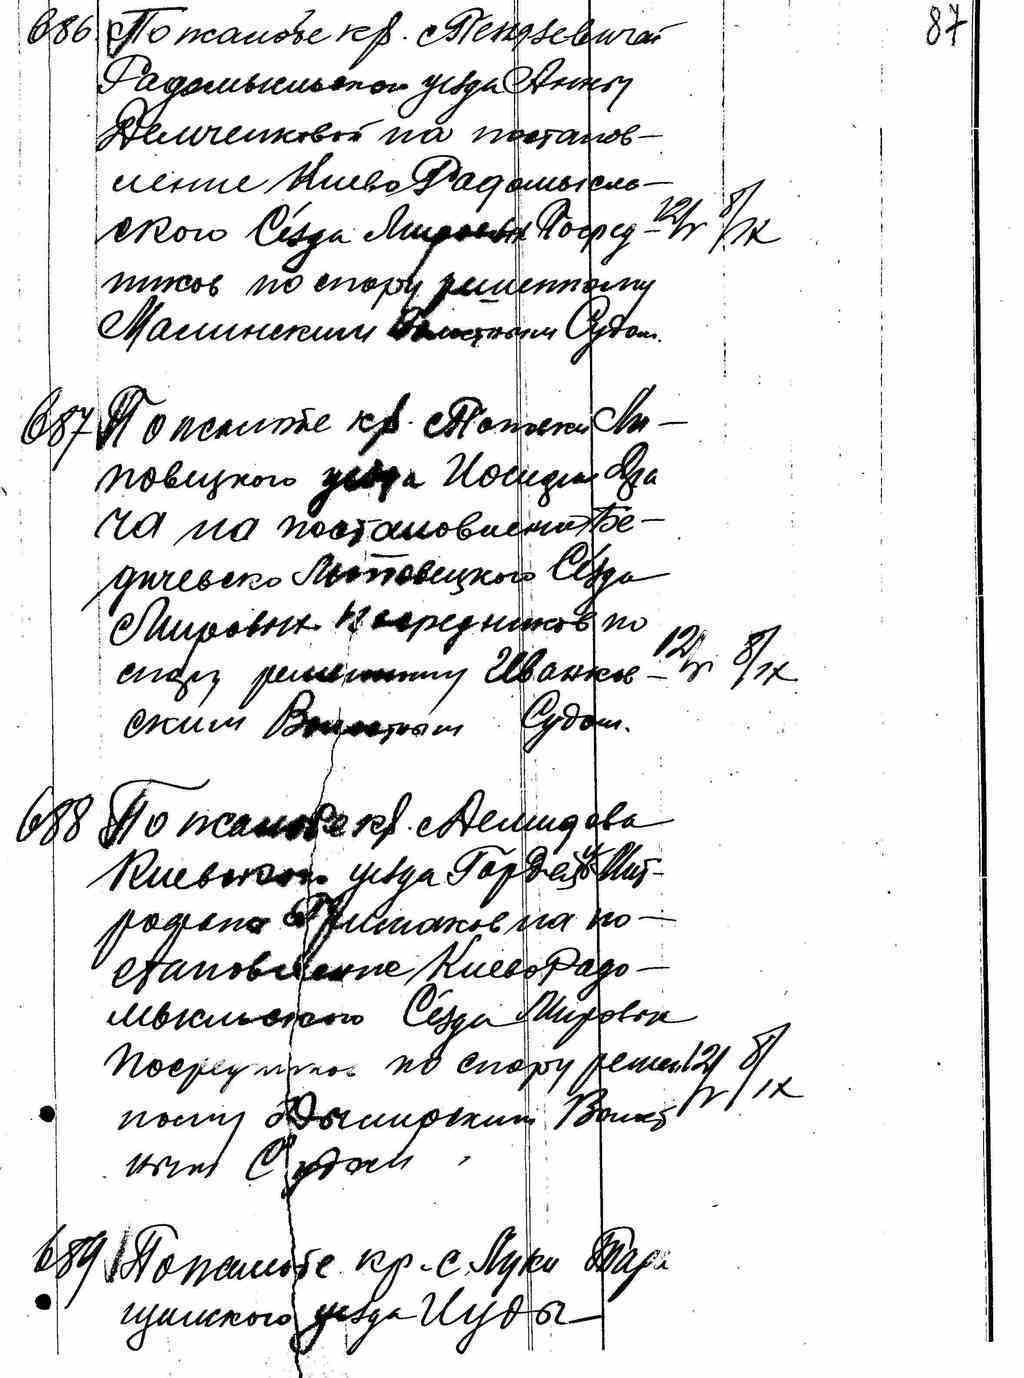 87
686 По жалобе кр.
Радомысльского уезда Анны
Демченковой на постанов-
ление Киево Радомысль-
ского Съезда Мировых Посред- 12/V 8/IX
ников по спору решенному
Малинским Волостным Судом.
687 По жалобе кр. с. Поповки Ли-
повецкого уезда Иосифа
ча на постановление Бе-
дичевско Липовецкого Съезда
Мировых посредников по
спору решенному Иванков- 12/V 8/IX
ским Волостным Судом.
688 По жалобе кр. с. Демидова
Киевского уезда Гордея и Мит-
рофана на по-
становление Киево Радо-
мысльского Съезда Мировых
Посредников по спору решен 12/V 8/IX
ному Дымирским Волост
ным Судом
689 По жалобе кр. с. Луки Тара
щанского уезда Иуды